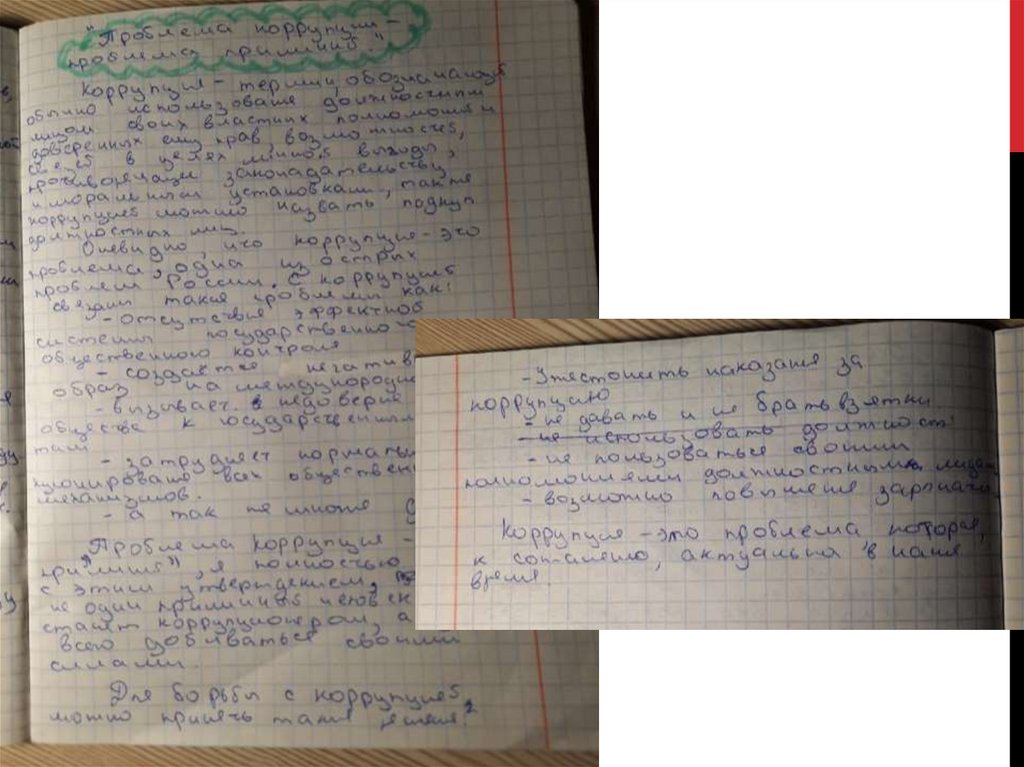 "Проблема коррупции –
проблема приличий."
Коррупция – термин, обозначающий
обычно использование должностным
лицом своих властных полномочий и
доверенных ему прав, возможностей,
связей в целях личной выгоды,
противоречащие законодательству
и моральным установкам, также
коррупцией можно назвать подкуп
должностных лиц.
Очевидно, что коррупция – это
проблема, одна из острых
проблем России. С коррупцией
связаны такие проблемы как:
- отсутствие эффективной
системы государственно
общественного контроля
- создаётся негатив
образ на международно
- вызывает недоверие
общества к государственным
там
- затрудняет нормаль
ционирование всех обществен
механизмов.
- а так же многое
Проблема коррупции –
приличий", я полностью
с этим утверждением,
не один приличный человек
станет коррупционером, а
всего добиваться своими
силами.
Для борьбы с коррупцией
можно принять такие решения:
- Ужесточить наказание за
коррупцию
- не давать и не брать взятки.
- не использовать должност
- не пользоваться своими
полномочиями должностным лицам
- возможно повышение зарплаты.
Коррупция – это проблема которая,
к сожалению, актуальна в наше
время.